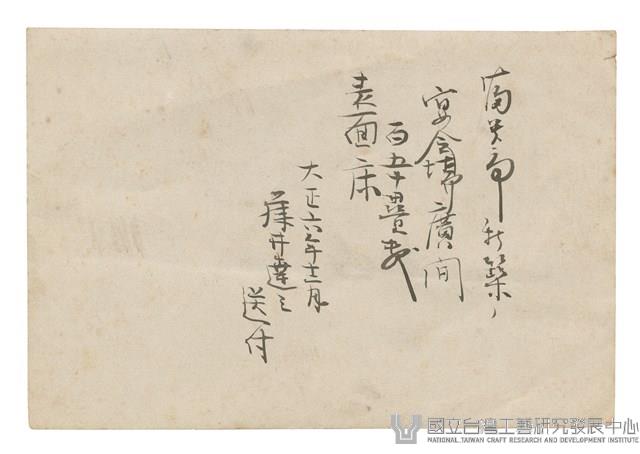 新築ノ
宴会場廣間
百五十畳敷
表面床
大正六年十二月
藤井達
送付
國立台灣工藝研究發展中心
NATIONAL TAIWAN CRAFT RESEARCH AND DEVELOPMENT INSTITUTE